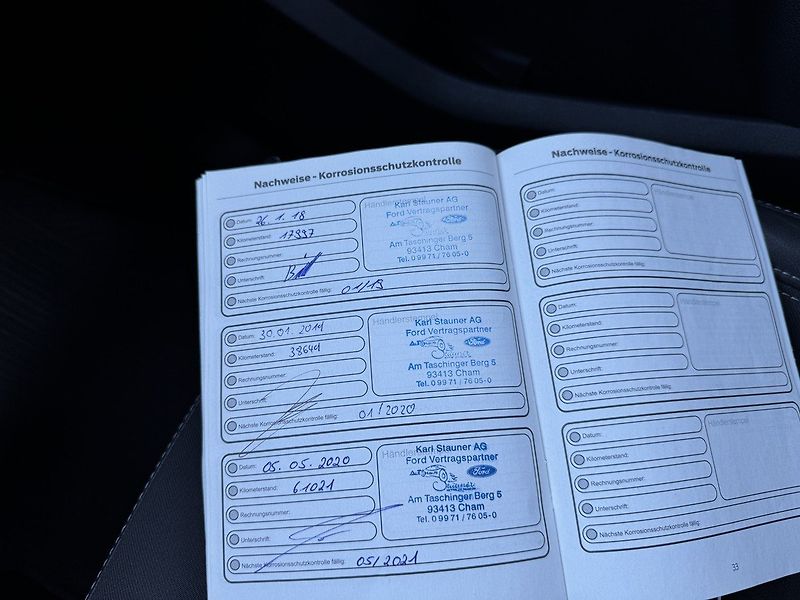 Nachweise - Korrosionsschutzkontrolle
Datum: 26.1.18
Kilometerstand: 17997
Rechnungsnummer:
Unterschrift:
Nächste Korrosionsschutzkontrolle fällig: 01/19
Händlerstempel
Karl Stauner AG
Ford Vertragspartner
Ford
Am Taschinger Berg 5
93413 Cham
Tel. 0 99 71 / 76 05-0
Datum: 30.01.2019
Kilometerstand: 38641
Rechnungsnummer:
Unterschrift:
Nächste Korrosionsschutzkontrolle fällig: 01/2020
Händlerstempel
Karl Stauner AG
Ford Vertragspartner
Ford
Am Taschinger Berg 5
93413 Cham
Tel. 0 99 71 / 76 05-0
Datum: 05.05.2020
Kilometerstand: 61021
Rechnungsnummer:
Unterschrift:
Nächste Korrosionsschutzkontrolle fällig: 05/2021
Händlerstempel
Karl Stauner AG
Ford Vertragspartner
Ford
Am Taschinger Berg 5
93413 Cham
Tel. 0 99 71 / 76 05-0
Nachweise - Korrosionsschutzkontrolle
Datum:
Kilometerstand:
Rechnungsnummer:
Unterschrift:
Nächste Korrosionsschutzkontrolle fällig:
Händlerstempel
Datum:
Kilometerstand:
Rechnungsnummer:
Unterschrift:
Nächste Korrosionsschutzkontrolle fällig:
Händlerstempel
Datum:
Kilometerstand:
Rechnungsnummer:
Unterschrift:
Nächste Korrosionsschutzkontrolle fällig:
Händlerstempel
33